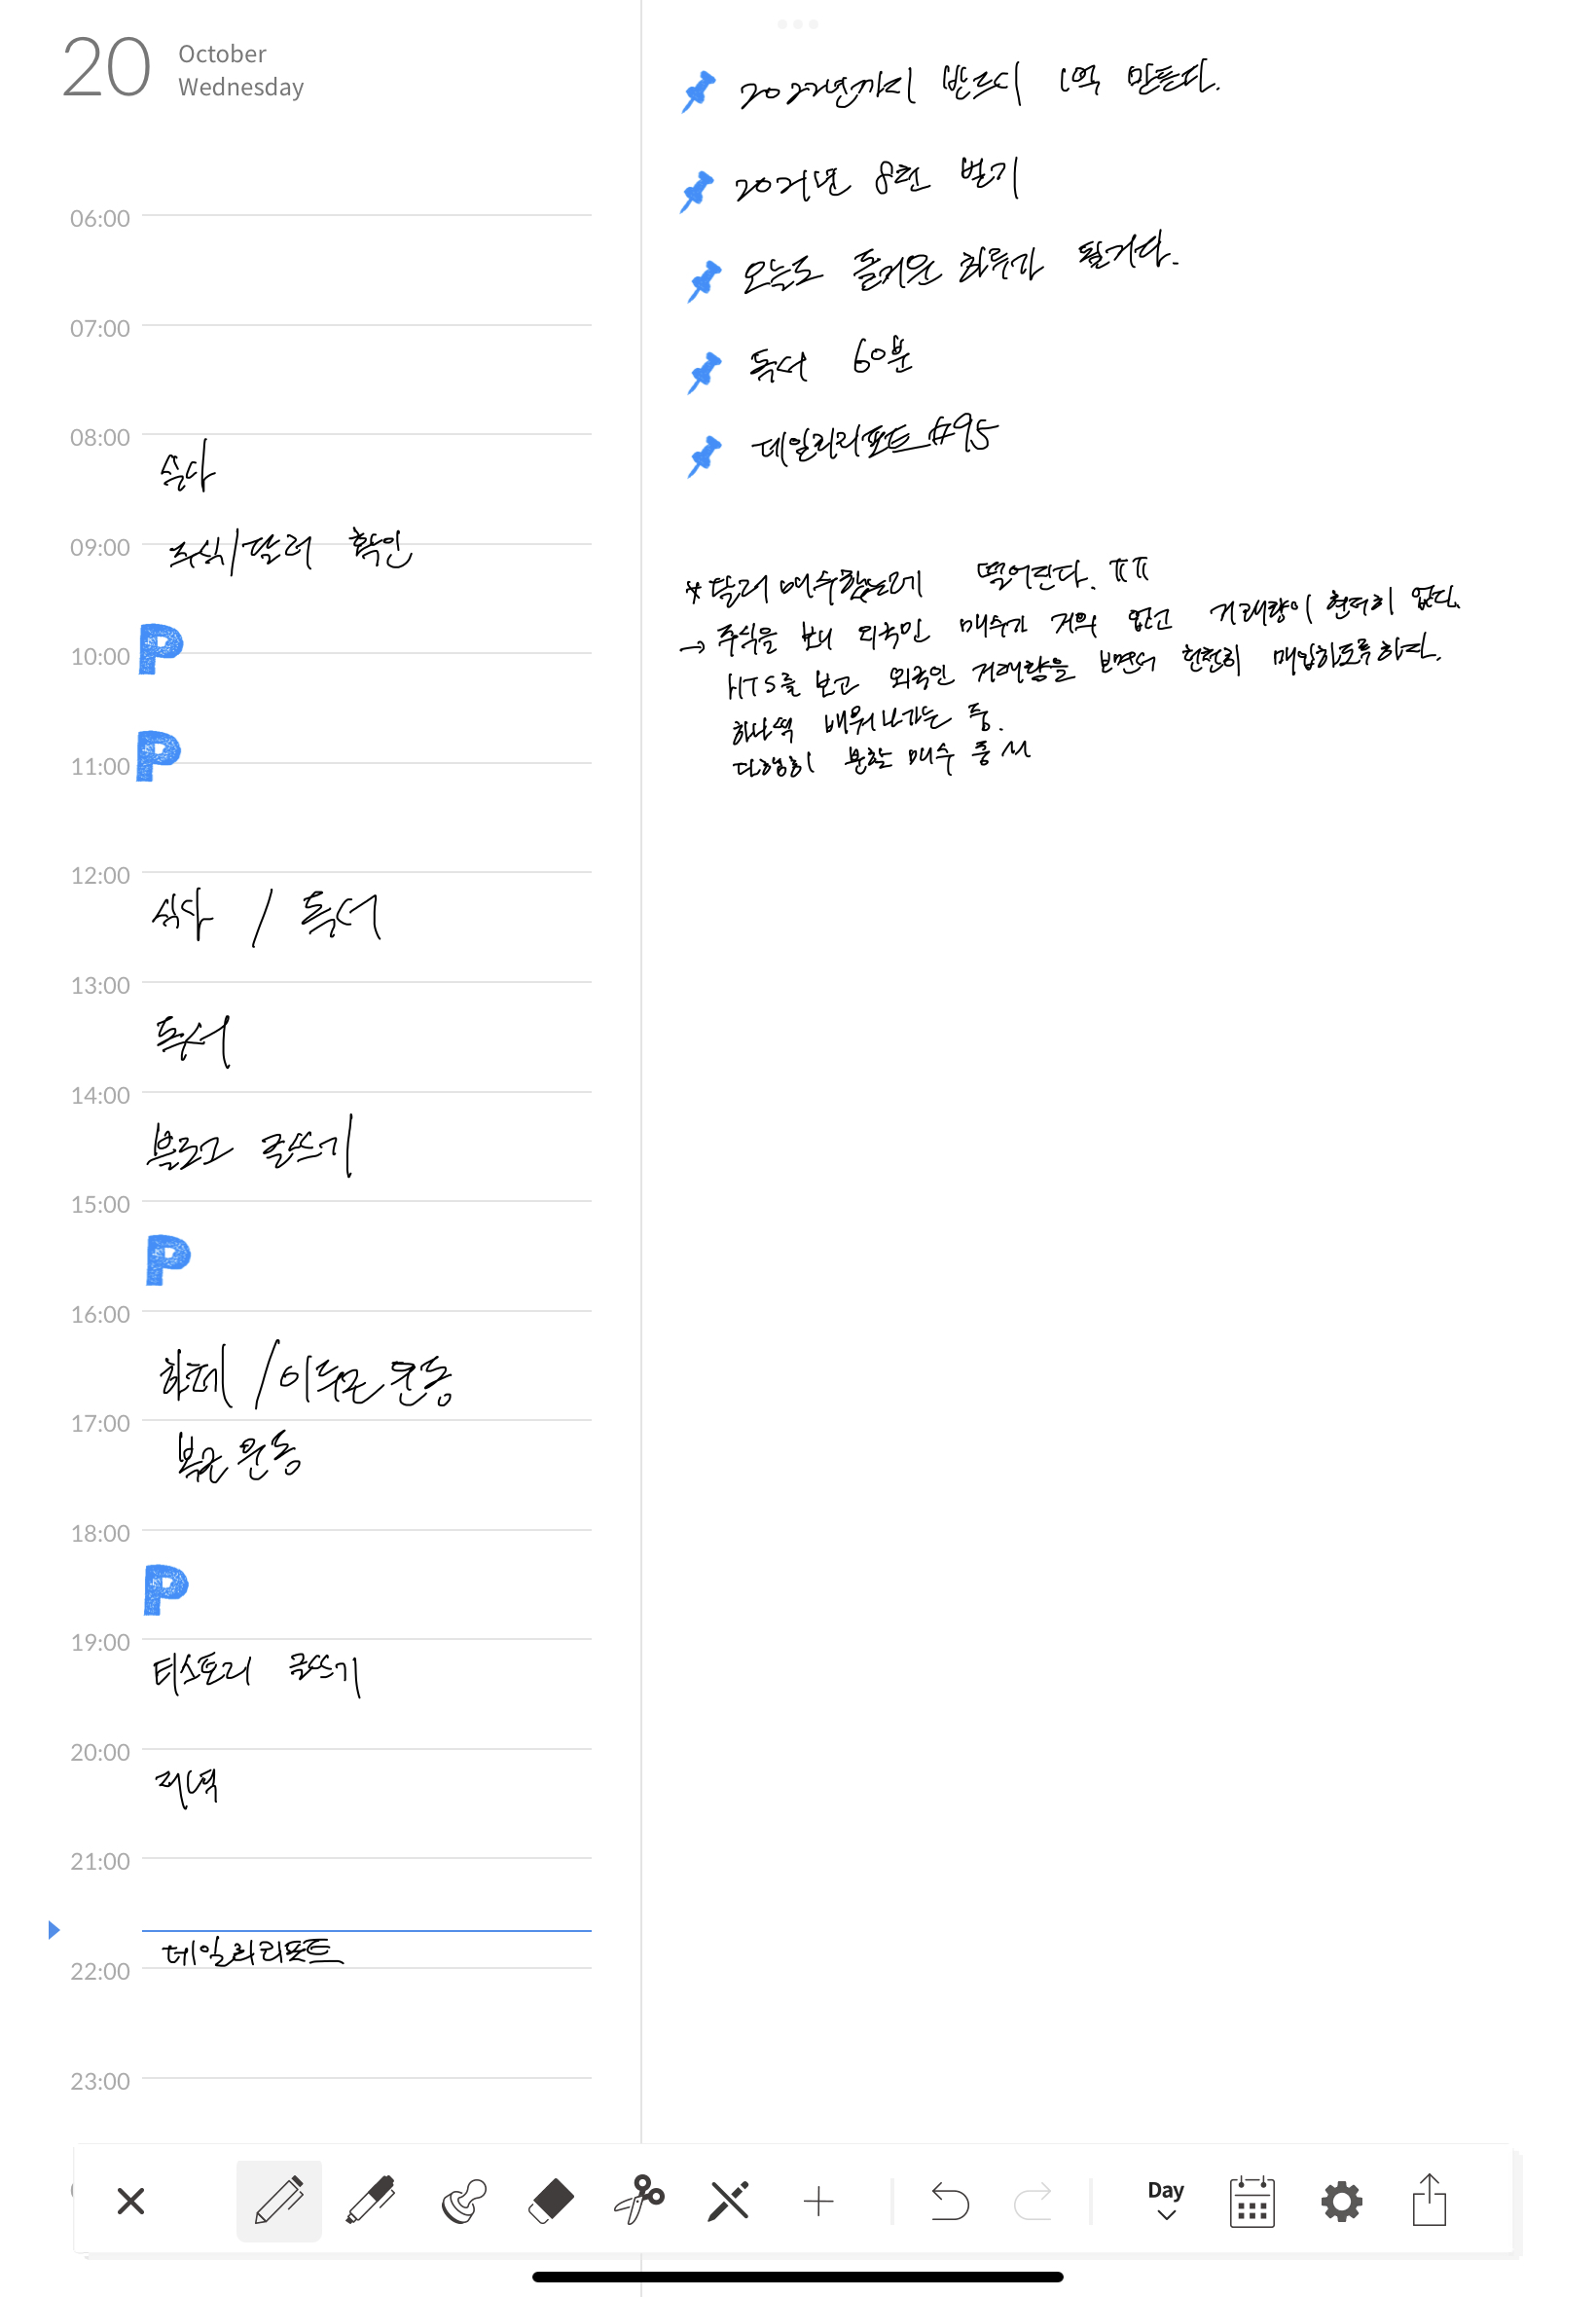 20 October
Wednesday
06:00
07:00
08:00
09:00
주식/달러 확인
10:00
P
11:00
P
12:00
식사 / 독서
13:00
독서
14:00
블로그 글쓰기
15:00
P
16:00
하체 / 이두근 운동
17:00
복근 운동
18:00
P
19:00
티스토리 글쓰기
20:00
저녁
21:00
데일리리포트
22:00
23:00
2022년까지 반드시 1억 만든다.
2021년 8천 벌기
오늘도 즐거운 하루가 될거다.
독서 60분
데일리리포트 #95
* 달러 매수했는데 떨어진다. ㅠㅠ
→ 주식을 보니 외국인 매수가 거의 없고 거래량이 현저히 없다.
HTS를 보고 외국인 거래량을 보면서 천천히 매입하도록하자.
하나씩 배워나가는 중.
다행히 분할 매수 중
Day